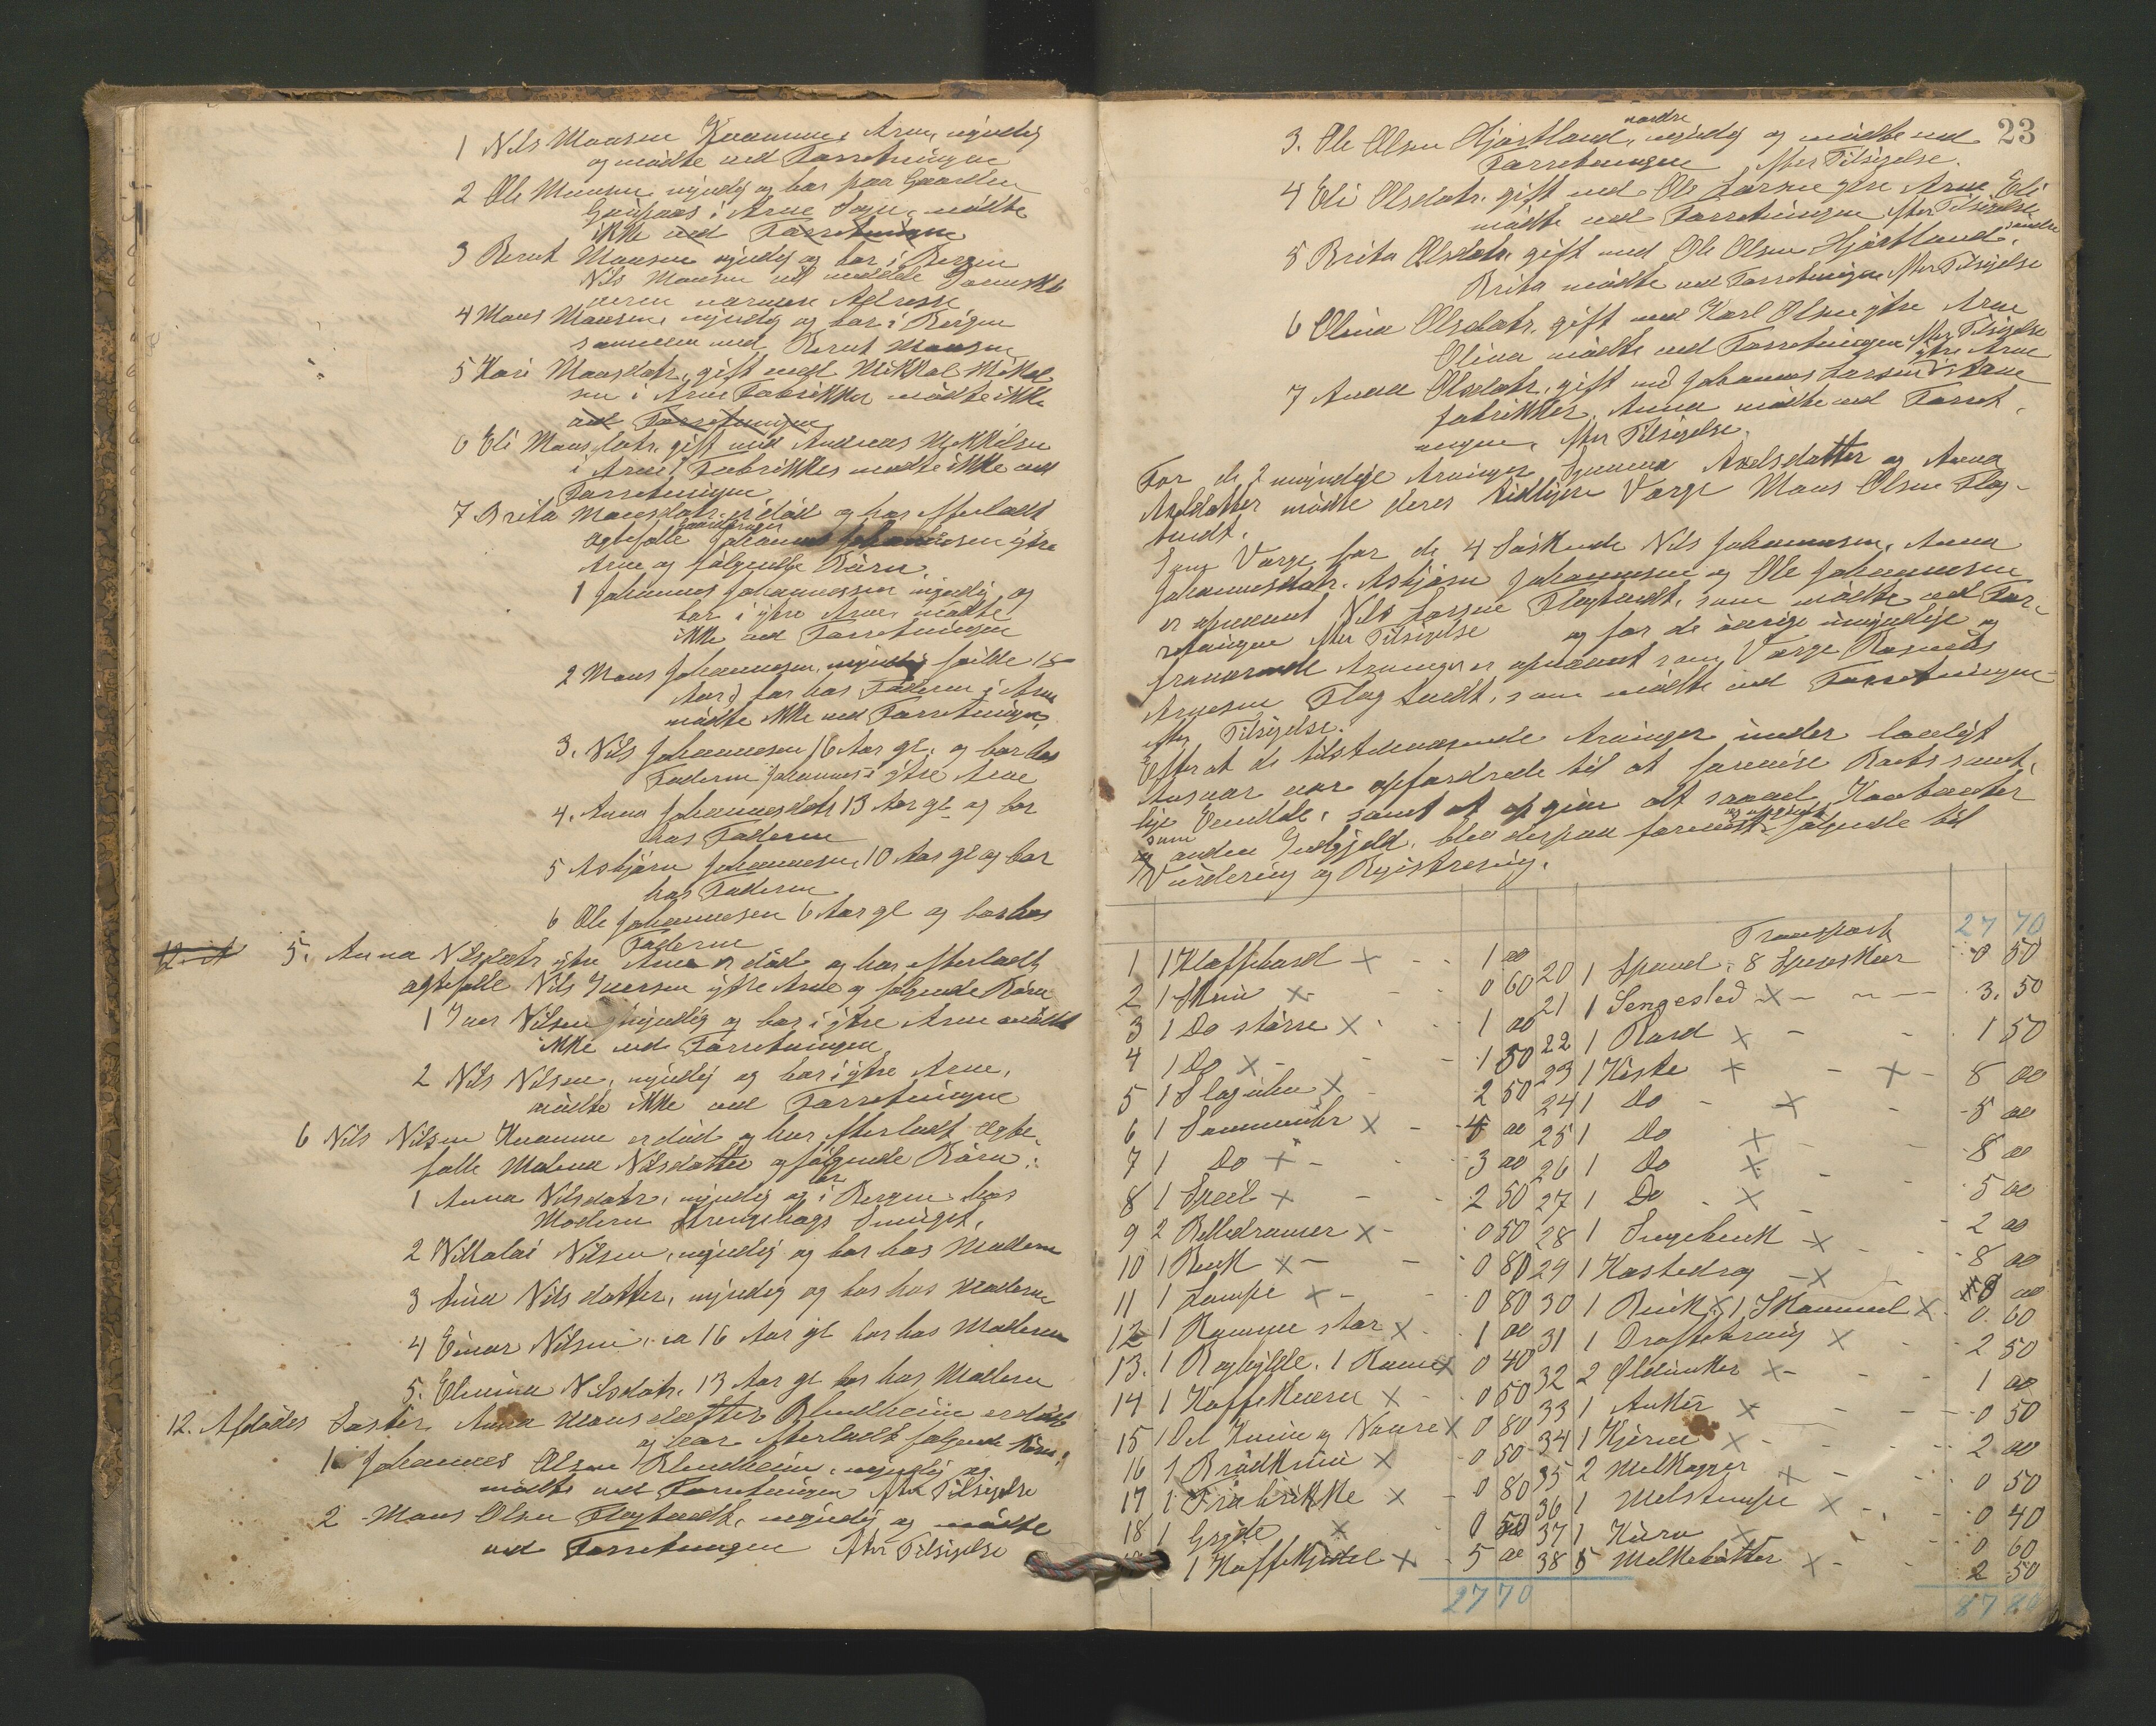 1 Nils Monsen Kvamme, Arne, myndig
og mødte ved Forretningen
2 Ole Monsen myndig og bor paa Gaarden
i Arne Sogn, mødte
ikke ved Forretningen
3 Bernt Monsen myndig og bor i Bergen
Nils Monsen vil meddele
nermere Adresse
4 Mons Monsen, myndig og bor i Bergen
sammen med Bernt Monsen
5 Kari Monsdatr. gift med Mikkel Mikkel
sen i Arne Fabrikker mødte ikke
ved Forretningen
6 Eli Monsdatr. gift med Andreas Mikkelsen
i Arne Fabrikker mødte ikke ved
Forretningen
7 Brita Monsdatr. er død og har efterladt
Gaardbruger
Ægtefælle Johannes Johannessen ytre
Arne og følgende Børn.
1 Johannes Johannessen myndig og
bor i ytre Arne, mødte
ikke ved Forretningen
2 Mons Johannesen, myndig fyldte 18
Aar, bor hos Faderen i Arne
mødte ikke ved Forretningen,
3. Nils Johannesen 16 Aar gl. og bor hos
Faderen Johannes i ytre Arne
4. Anna Johannesdatr 13 Aar gl og bor
hos Faderen
5 Asbjørn Johannesen, 10 Aar gl og bor
hos Faderen
6 Ole Johannesen 6 Aar gl og bor hos
Faderen
5. Anna Nilsdatr ytre Arne er død og har efterladt
Ægtefælle Nils Iversen ytre Arne og følgende Børn
1 Iver Nilsen myndig og bor i ytre Arne mødte
ikke ved Forretningen
2 Nils Nilsen, myndig og bor i ytre Arne,
mødte ikke ved Forretningen
6 Nils Nilsen Kvamme er død og har efterladt Ægte,
fælle Malena Nilsdatter og følgende Børn:
bor
1 Anna Nilsdatr, myndig og i Bergen hos
Moderen Strangehags Smuget,
2 Nikolai Nilsen, myndig og bor hos Moderen
3 Nilsdatter, myndig og bor hos Moderen
4 Einar Nilsen, ca 16 Aar gl bor hos Moderen
5. Elmina Nilsdatr. 13 Aar gl bor hos Moderen
12. Afdødes Søster Anna Monsdatter Blindheim er død
og har efterladt følgende Børn:
1. Johannes Olsen Blindheim, myndig og
mødte ved Forretningen efter Tilsigelse
2 Mons Olsen Flagtvedt, myndig og mødte
ved Forretningen efter Tilsigelse
23
nordre
3. Ole Olsen Hjortland, myndig og mødte ved
Forretningen efter Tilsigelse.
4 Eli Olsdatr. gift med Ole Larsen ytre Arne, Eli
mødte ved Forretningen efter Tilsigelse
indre
5 Brita Olsdatr. gift med Ole Olsen Hjortland,
Brita mødte ved Forretningen efter Tilsigelse
6 Olina Olsdatr. gift med Karl Olsen ytre Arne
Olina mødte ved Forretningen efter Tilsigelse
ytre Arne
7 Anna Olsdatr. gift med Johannes Larsen Arne
fabrikker, Anna mødte ved Forret,
ningen, efter Tilsigelse.
For de 2 umyndige Arvinger Axelsdatter og Anna
Axelsdatter mødte deres tidligere Værge Mons Olsen Flag-
tvedt.
Som Værge for de 4 Søskende Nils Johannesen, Anna
Johannesdatr. Asbjørn Johannesen og Ole Johannesen
er opnævnt Nils Larsen Flagtvedt, som mødte ved For,
retningen efter Tilsigelse og for de øvrige umyndige og
fraværende Arvinger er opnævnt som Værge Rasmus
Arnesen Flagtvedt, som mødte ved Forretningen
efter Tilsigelse.
Efterat de tilstedeværende Arvinger under lovligt
Ansvar var opfordrede til at fremvise Boets samt,
lige Eiendele, samt at opgive alt saavel Kontanter
som og opgivet
anden Indgjeld, blev derpaa forevist følgende til
Vurdering og Registrering.
Transport 27 70
1 1 Klaffebord x 1 00
2 1 Skrin x 0 60
3 1 Do større x 1 00
4 1 Do x 1 50
5 1 Slaguhr x 2 50
6 1 Lommeuhr x 4 00
7 1 Do x 3 00
8 1 Speil x 2 50
9 2 Billedramer x 0 50
10 1 Bænk x 0 80
11 1 Lampe x 0 80
12 1 Ramme stor x 1 00
13. 1 Boghylde. 1 Ramme x 0 40
14 1 Kaffekværn x 0 50
15 1 Del Knive og x 0 80
16 1 Brødkniv x 0 50
17 1 x 0 80
18 1 Gryde x 0 50
1 Kaffekjedel x 5 00
27 70
20 1 Spand, 8 Speseskeer 0 50
21 1 Sengested x 3. 50
22 1 Bord x 1 50
23 1 Kiste x 8 00
24 1 Do x 5 00
25 1 Do x 8 00
26 1 Do x 5 00
27 1 Do x 2 00
28 1 Sengebenk x 8 00
29 1 x 8 00
30 1 Benk x 1 Skammel x 0. 60
31 1 x 2 50
32 2 Øldunker x 1 00
33 1 Anker x 0 50
34 1 Kjerne x 2 00
35 2 Melkopper x 0 50
36 1 Melstampe x 0 40
37 1 Kurv x 0 60
38 5 Melkebøtter x 2 50